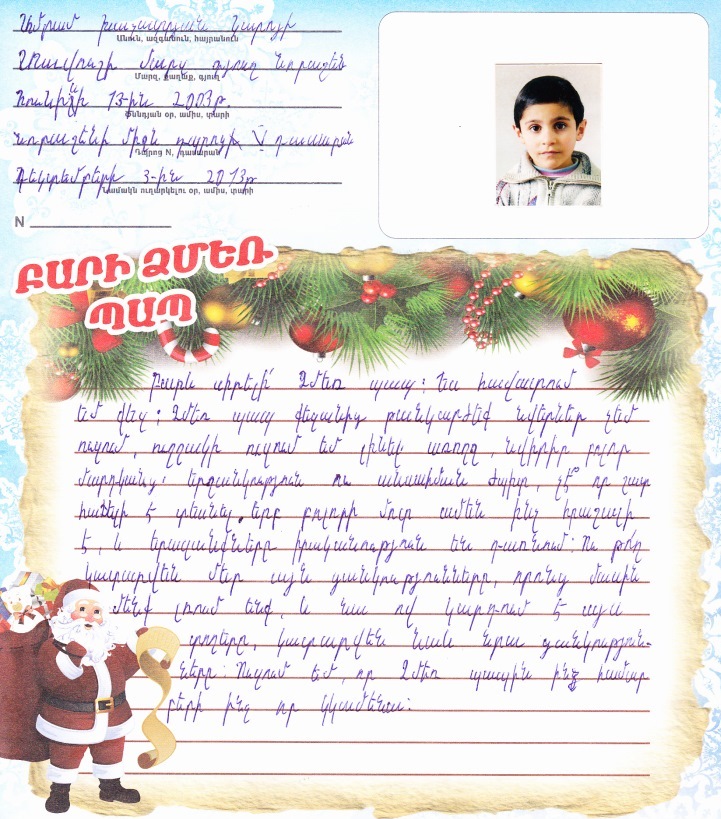 Արմրամ Խաչատրյան Կարոյի
Անուն, ազգանուն, հայրանուն
Տավուշի մարզ գյուղ Նորաշեն
Մարզ, քաղաք, գյուղ
Հունիսի 13-ին 2003թ.
Ծննդյան օր, ամիս, տարի
Նորաշենի միջն դպրոցի V դասարան
Դպրոց N, դասարան
Դեկտեմբերի 3-ին 2013թ
Նամակն ուղարկելու օր, ամիս, տարի
N
ԲԱՐԻ ՁՄԵՌ
ՊԱՊ
Բարև սիրելի՛ Ձմեռ պապ: Ես հավատում
եմ քեզ: Ձմեռ պապ քեզանից թանկարժեք նվերներ չեմ
ուզում, ուղղակի ուզում եմ լինել առողջ, նվիրիր բոլոր
մարդկանց երջանկություն ու անսահման ժպիտ, չէ՞ որ շատ
հաճելի է տեսնել, երբ բոլորի մոտ ամեն ինչ հրաշալի
է, և երազանքները իրականություն են դառնում: Ու թող
կատարվեն մեր այն ցանկությունները, որոնց մասին
մենք լռում ենք, և նա ով կարդում է այս
տողերը, կատարվեն նաև նրա ցանկություն-
ները: Ուզում եմ, որ Ձմեռ պապին ինձ համար
բերի ինչ որ կկամենա: